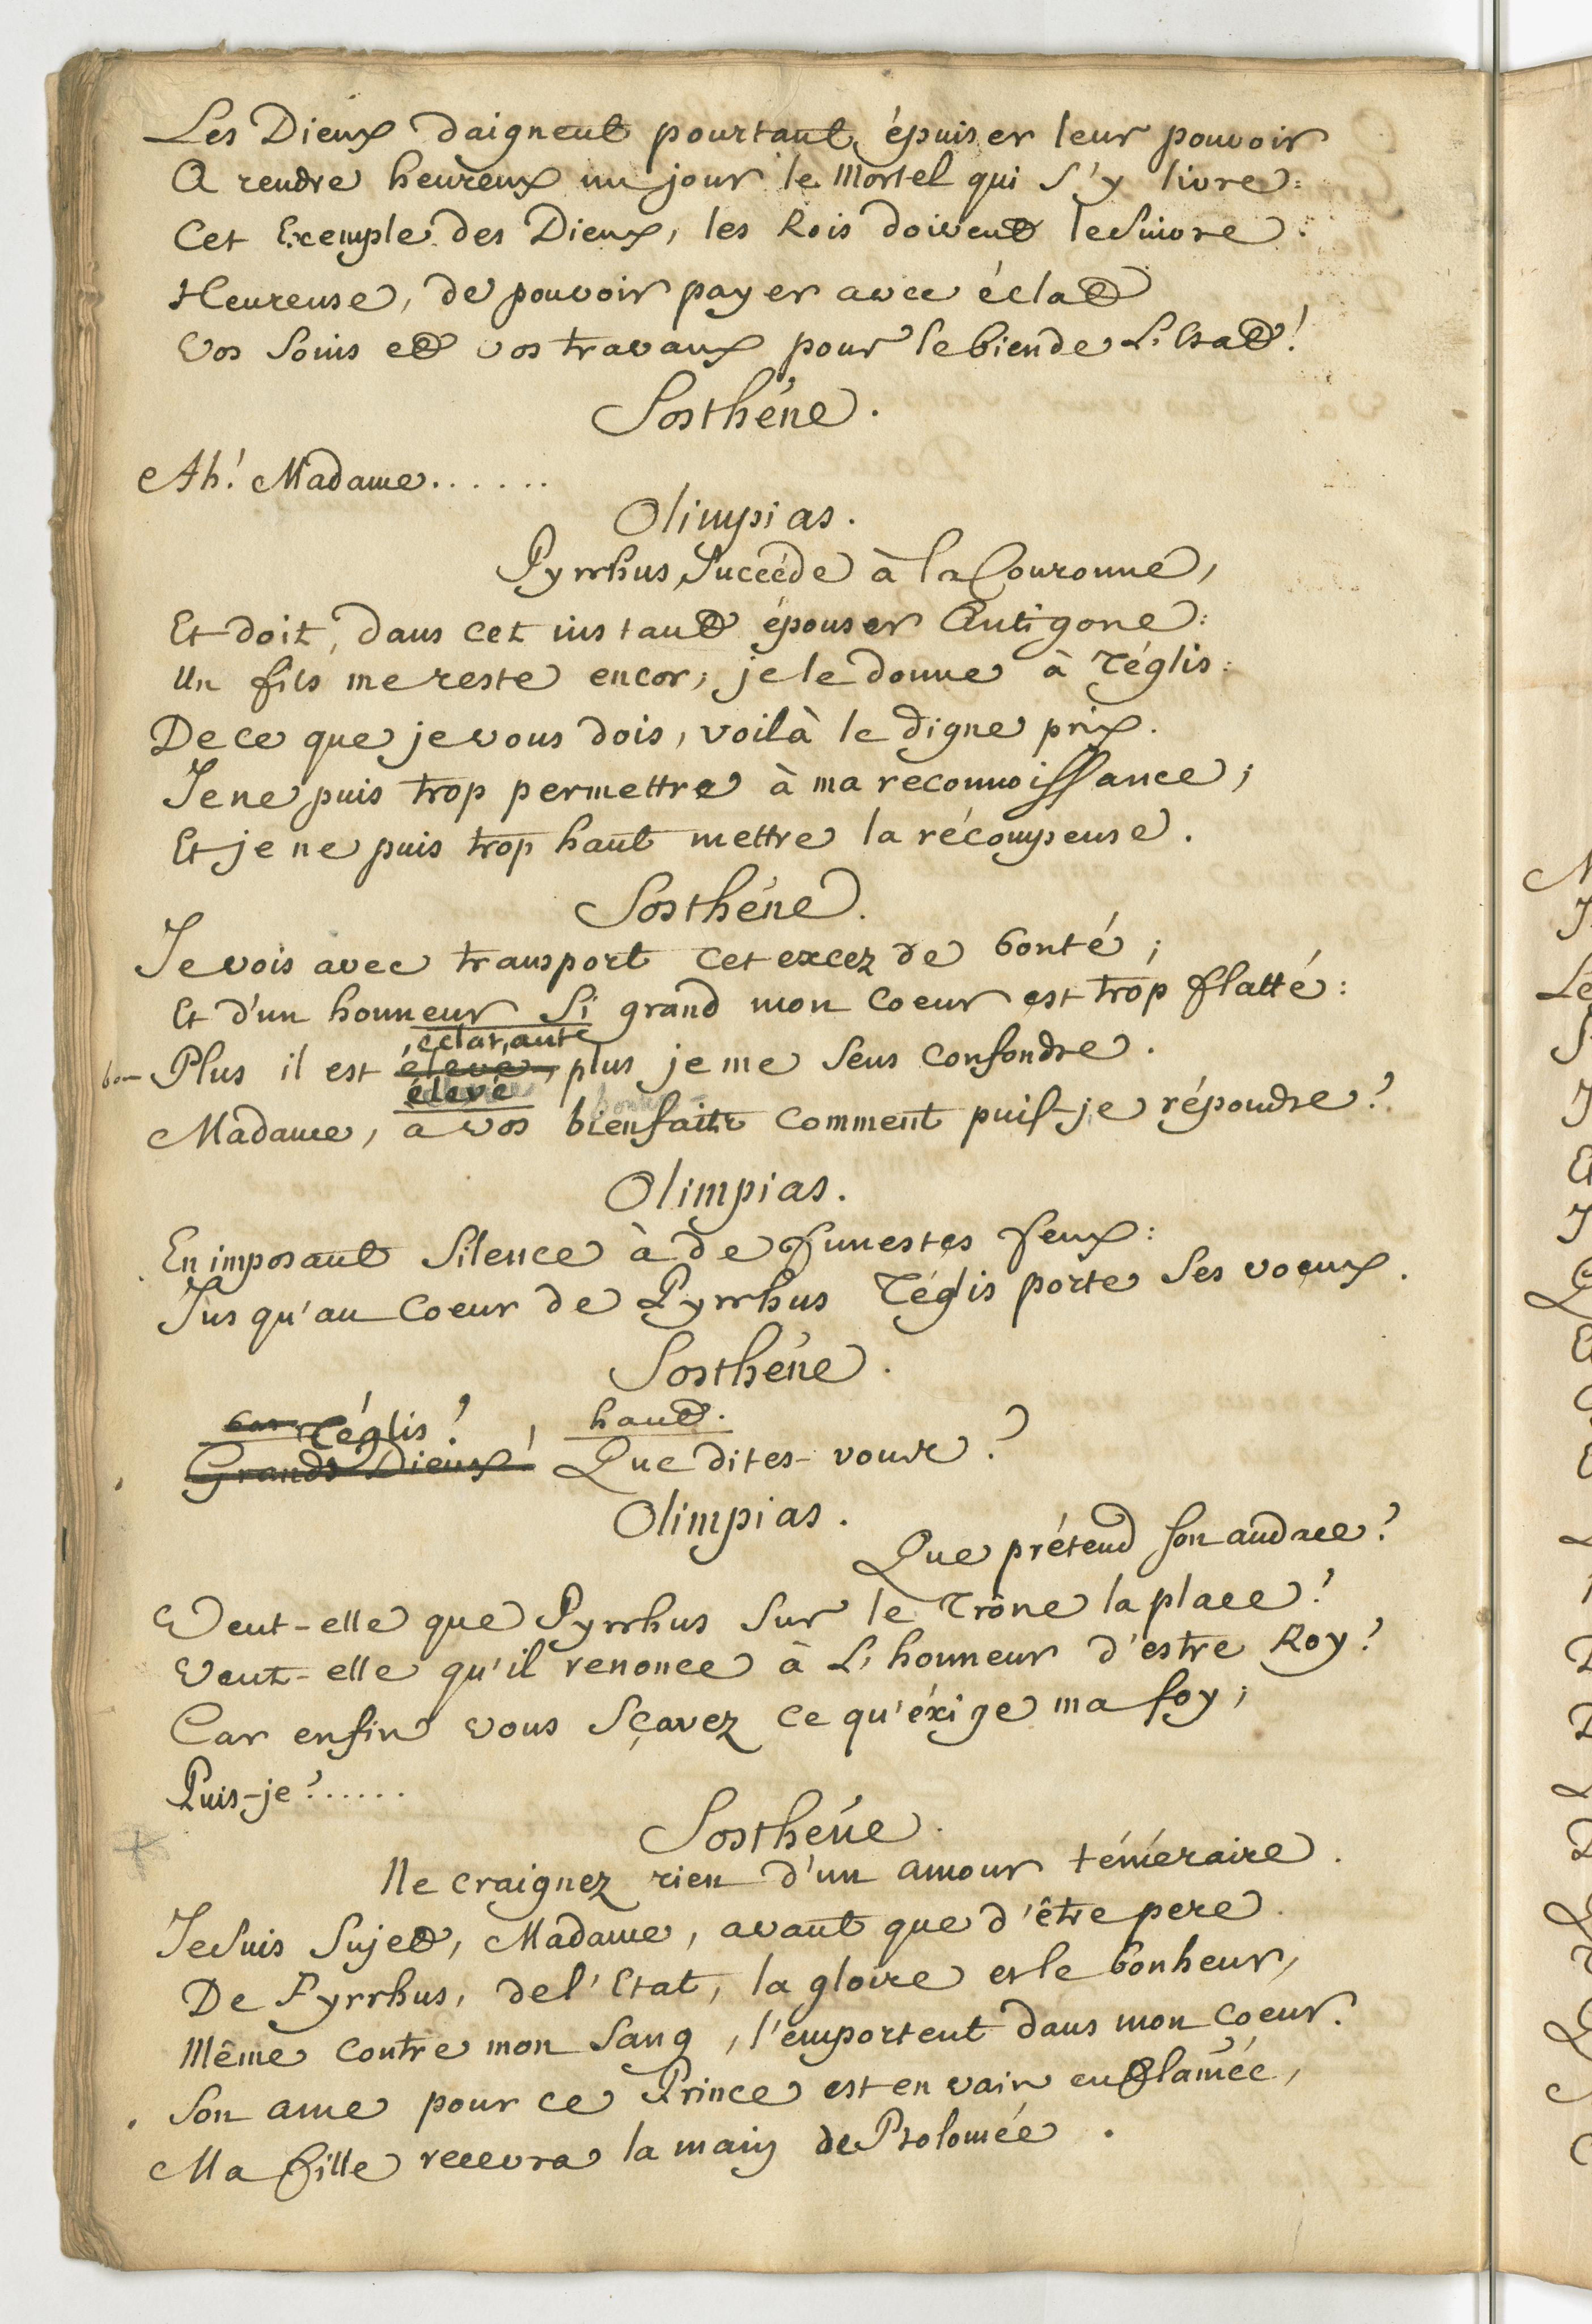 Les Dieux daignent pourtant, épuiser leur pouvoir
A rendre heureux un jour le Mortel qui s'y livre:
Cet Exemple des Dieux, les Rois doivent le suivre:
Heureuse, de pouvoir payer avec éclat
Vos soins et vos travaux pour le bien de L'Etat!
Sosthéne.
Ah! Madame......
Olimpias.
Pyrrhus succéde à la Couronne,
Et doit, dans cet instant épouser Antigone:
Un fils me reste encor; je le donne à Téglis:
De ce que je vous dois, voilà le digne prix.
Je ne puis trop permettre à ma reconnoissance;
Et je ne puis trop haut mettre la récompense.
Sosthéne.
Je vois avec transport cet excez de bonté;
Et d'un honneur si grand mon coeur est trop flatté:
éclatant
bon Plus il est élevé, plus je me sens confondre.
élevé
Madame, a vos bienfaits comment puis-je répondre?
Olimpias.
En imposant silence à de funestes feux:
Jusqu'au coeur de Pyrrhus Téglis porte ses voeux.
Sosthéne.
bas Téglis! haut.
Grands Dieux! Que dites-vous?
Olimpias.
Que prétend son audace?
Veut-elle que Pyrrhus sur le Trône la place?
Veut-elle qu'il renonce à L'honneur d'estre Roy?
Car enfin vous sçavez ce qu'éxige ma foy;
Puis-je?......
Sosthéne.
Ne craignez rien d'un amour téméraire.
Je suis sujet, Madame, avant que d'être pere.
De Pyrrhus, de l'Etat, la gloire et le bonheur,
Même contre mon sang, l'emportent dans mon coeur.
Son ame pour ce Prince est en vain enflamée,
Ma fille recevra la main de Ptolomée.